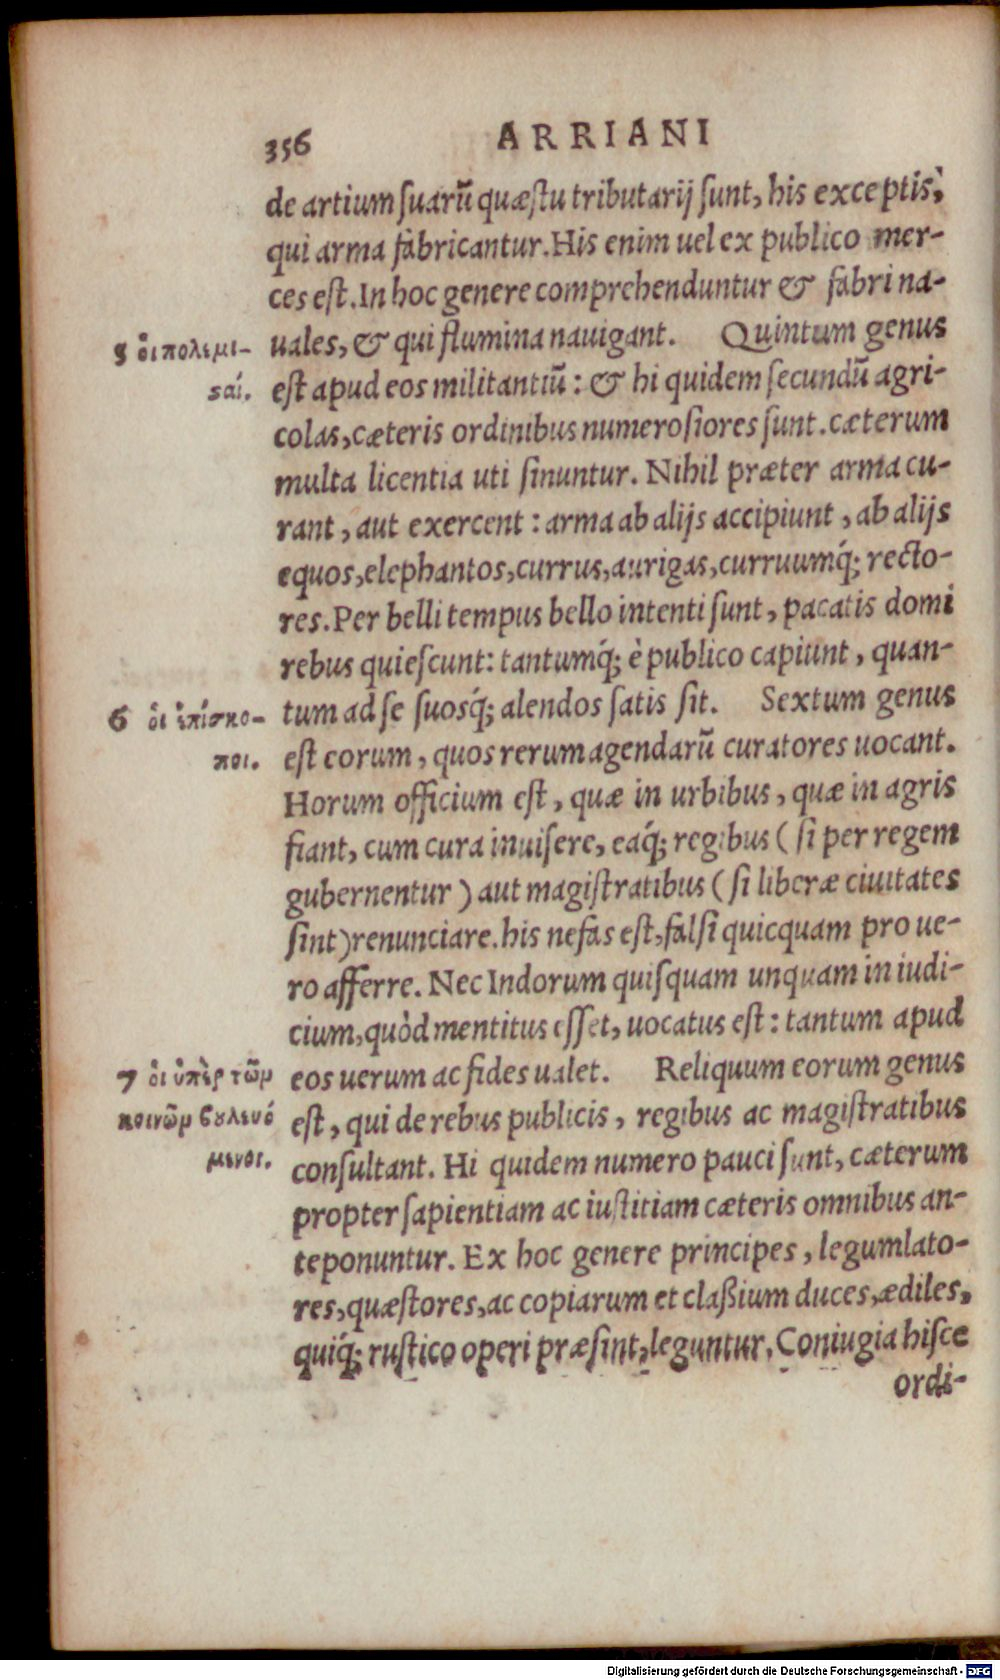 356 ARRIANI
de artium suarũ quæstu tributarij sunt, his exceptis,
qui arma fabricantur. His enim uel ex publico mer-
ces est. In hoc genere comprehenduntur & fabri na-
uales, & qui flumina nauigant. Quintum genus
5 οἱ πολεμι-
est apud eos militantiũ: & hi quidem secundũ agri-
ςαί.
colas, cæteris ordinibus numerosiores sunt. cæterum
multa licentia uti sinuntur. Nihil præter arma cu-
rant, aut exercent: arma ab alijs accipiunt, ab alijs
equos, elephantos, currus, aurigas, curruumq́; recto-
res. Per belli tempus bello intenti sunt, pacatis domi
rebus quiescunt: tantumq́; è publico capiunt, quan-
tum ad se suosq́; alendos satis sit. Sextum genus
6 οἱ ἐπίσκο-
est eorum, quos rerum agendarũ curatores uocant.
ποι.
Horum officium est, quæ in urbibus, quæ in agris
fiant, cum cura inuisere, eaq́; regibus (si per regem
gubernentur) aut magistratibus (si liberæ ciuitates
sint) renunciare. his nefas est, falsi quicquam pro ue-
ro afferre. Nec Indorum quisquam unquam in iudi-
cium, quòd mentitus esset, uocatus est: tantum apud
eos uerum ac fides ualet. Reliquum eorum genus
7 οἱ ὑπὲρ τῶμ
est, qui de rebus publicis, regibus ac magistratibus
κοινῶμ βȣλευό
consultant. Hi quidem numero pauci sunt, cæterum
μενοι.
propter sapientiam ac iustitiam cæteris omnibus an-
teponuntur. Ex hoc genere principes, legumlato-
res, quæstores, ac copiarum et claßium duces, ædiles,
quiq́; rustico operi præsint, leguntur. Coniugia hisce
ordi-
Digitalisierung gefördert durch die Deutsche Forschungsgemeinschaft - DFG